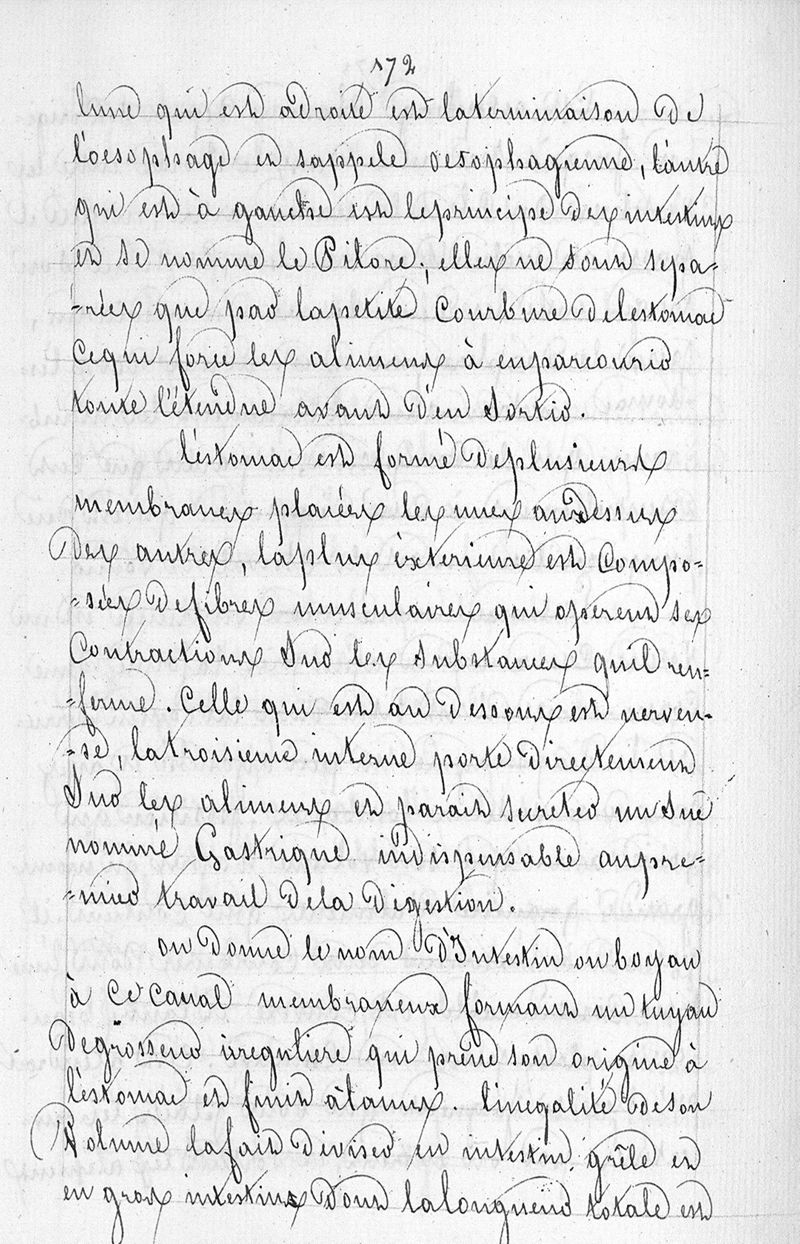 172
l'une qui est àdroite est laterminaison de
l'oesophage et sappele oesophagienne, l'autre
qui est à gauche est leprincipe des intestins
et se nomme le Pilore, elles ne sont sepa-
-rées que par lapetite courbure delestomac
cequi force les alimens à enparcourir
toute l'étendue avant d'en sortir.
l'éstomac est formé deplusieurs
membranes placées les unes audessus
des autres, laplus éxterieure est compo-
-sées defibres musculaires qui opèrent ses
contractions sur les substances quil ren-
-ferme. Celle qui est au desous est nerveu-
-se, latroisieme interne porte directement
sur les alimens et parait secreter un suc
nommé Gastrique indispensable aupre-
-mier travail dela digestion.
on donne le nom d'Intestin ou boyau
à ce canal membraneux formant un tuyau
degrosseur irregulière qui prend son origine à
l'estomac et finit àlanus. linegalité deson
volume lafait deviser en intestin grêle et
en gros intestins dont lalongueur totale est